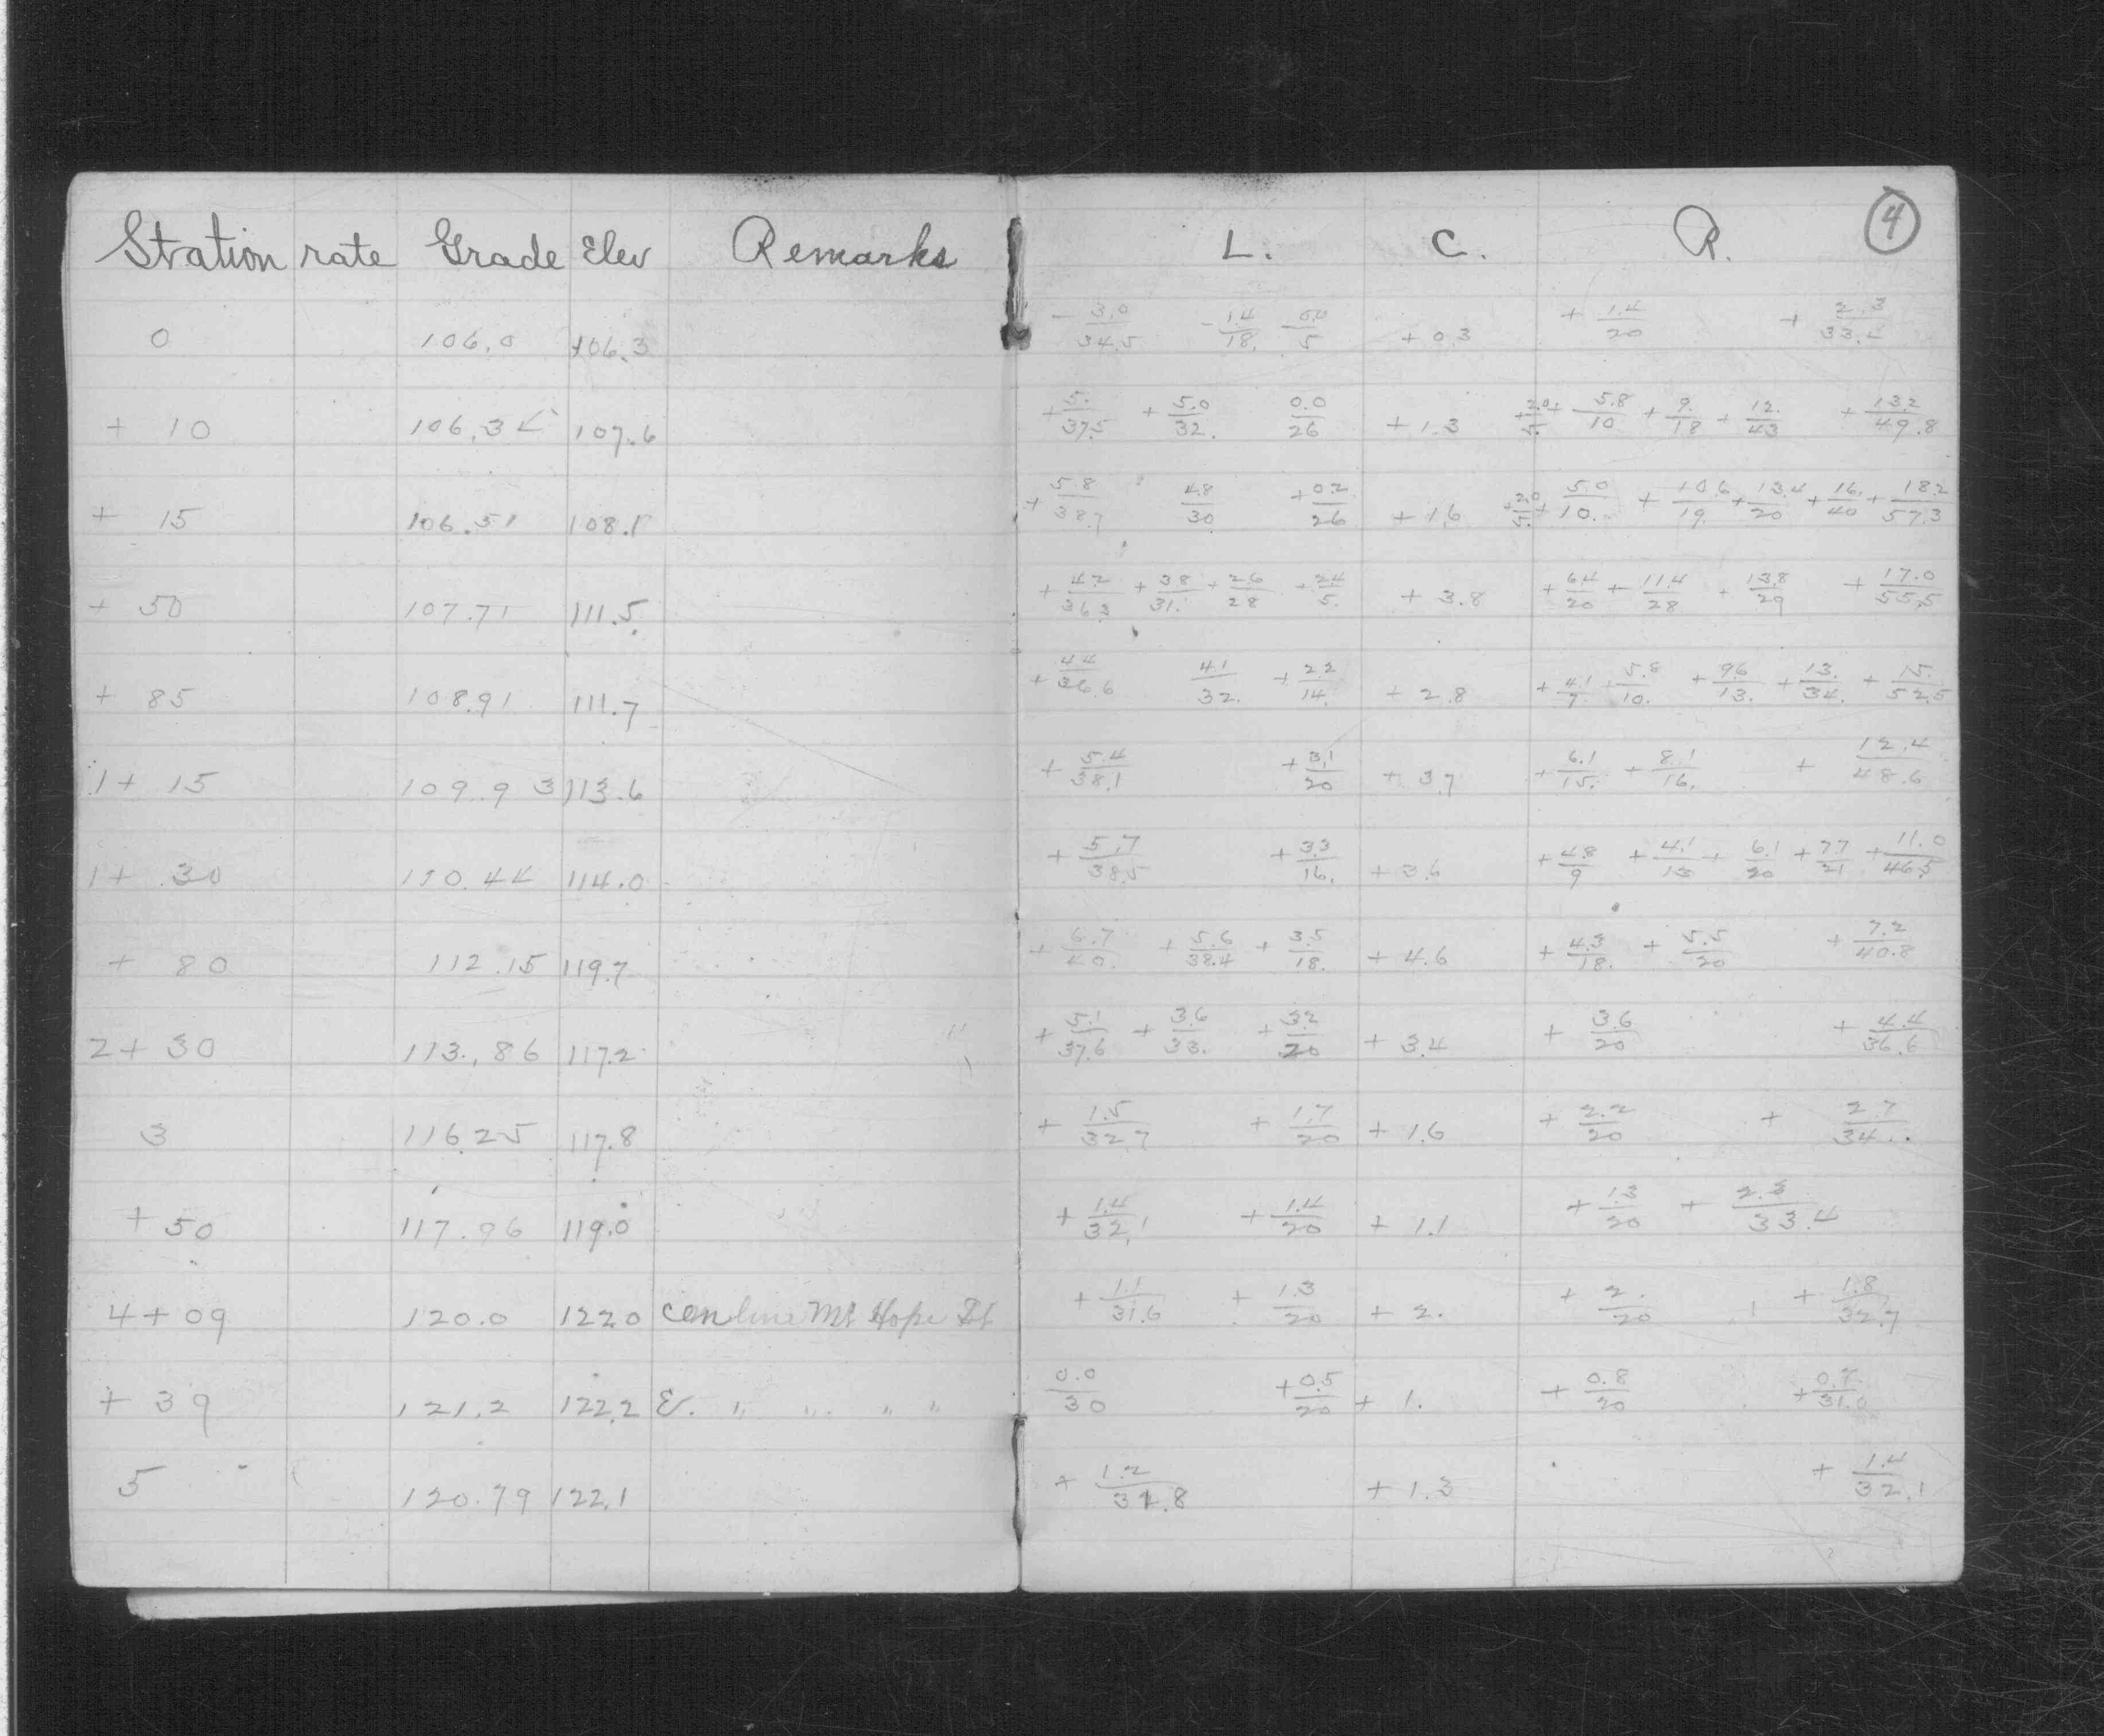 Station rate Grade Elev Remarks L. C. R. 4
0 106.0 106.3 - 3.0/34.5 - 1.4/18. 0.0/5 + 0.3 + 1.4/20 + 2.3/33.
+ 10 106.34 107.6 + 5./37.5 + 5.0/32. 0.0/26 + 1.3 + 2.0/5. + 5.8/10 + 9./18 + 12./43 + 13.2/49.8
+ 15 106.51 108.1 + 5.8/38.7 4.8/30 + 0.2/26 + 1.6 + 2.0/5. + 5.0/10. + 10.6/19. + 13.4/20 + 16./40 + 18.2/57.3
+ 50 107.71 111.5 + 4.2/36.3 + 3.8/31. + 2.6/28 + 2.4/5. + 3.8 + 6.4/20 + 11.4/28 + 13.8/29 + 17.0/55.5
+ 85 108.91 111.7 + 4.4/36.6 4.1/32. + 2.2/14. + 2.8 + 4.1/7. + 5.8/10. + 9.6/13. + 13./34. + 15./52.5
1 + 15 109.93 113.6 + 5.4/38.1 + 3.1/20 + 3.7 + 6.1/15. + 8.1/16. + 12.4/48.6
1 + 30 110.44 114.0 + 5.7/38.5 + 3.3/16. + 3.6 + 4.8/9 + 4.1/13 + 6.1/20 + 7.7/21 + 11.0/46.5
+ 80 112.15 119.7 + 6.7/40. + 5.6/38.4 + 3.5/18. + 4.6 + 4.3/18. + 5.5/20 + 7.2/40.8
2 + 30 113.86 117.2 + 5.1/37.6 + 3.6/33. + 3.2/20 + 3.4 + 3.6/20 + 4.4/36.6
3 116.25 117.8 + 1.5/32.7 + 1.7/20 + 1.6 + 2.2/20 + 2.7/34.
+ 50 117.96 119.0 + 1.4/32.1 + 1.4/20 + 1.1 + 1.3/20 + 2.3/33.4
4 + 09 120.0 122.0 Cen line Mt Hope St + 1.1/31.6 + 1.3/20 + 2. + 2./20 + 1.8/32.7
+ 39 121.2 122.2 E. " " " " 0.0/30 + 0.5/20 + 1. + 0.8/20 + 0.7/31.0
5 120.79 122.1 + 1.2/31.8 + 1.3 + 1.4/32.1